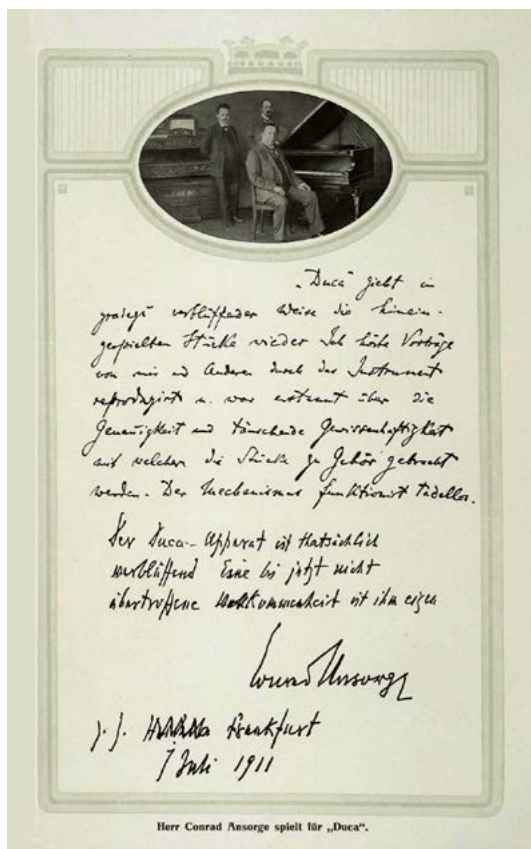 „Duca" giebt in
geradezu verblüffender Weise die hinein-
gespielten Stücke wieder Ich hörte Vorträge
von mir und Anderen durch das Instrument
reproduzirt u. war erstaunt über die
Genauigkeit und täuschende Gewissenhaftigkeit
mit welchen die Stücke zu Gehör gebracht
werden. Der Mechanismus funktionirt tadellos.
Der Duca-Apparat ist thatsächlich
verblüffend Eine bis jetzt nicht
übertroffene Vollkommenheit ist ihm eigen
Conrad Ansorge
Frankfurt
7 Juli 1911
Herr Conrad Ansorge spielt für „Duca".